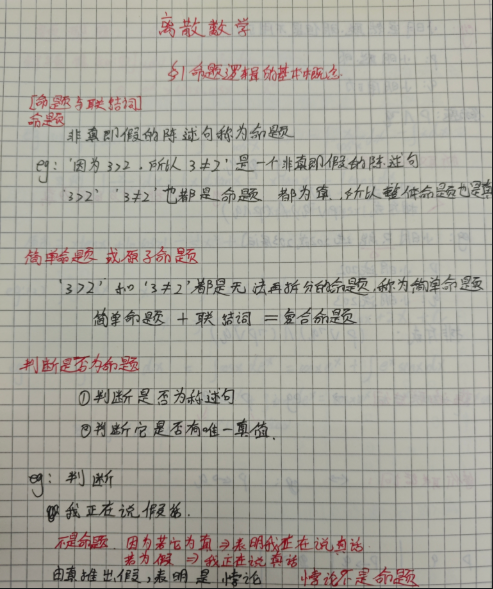 离散数学
§1 命题逻辑的基本概念
[命题与联结词]
命题
非真即假的陈述句称为命题
eg: '因为3>2，所以3≠2' 是一个非真即假的陈述句
'3>2' '3≠2' 也都是命题 都为真，所以整体命题也是真
简单命题 或原子命题
'3>2' 和 '3≠2' 都是无法再拆分的命题，称为简单命题
简单命题 + 联结词 = 复合命题
判断是否为命题
①判断是否为称述句
②判断它是否有唯一真值.
eg: 判断
我正在说假话.
不是命题. 因为若它为真 ⇒ 表明我正在说真话
若为假 ⇒ 我正在说真话
由真推出假，表明是悖论 悖论不是命题